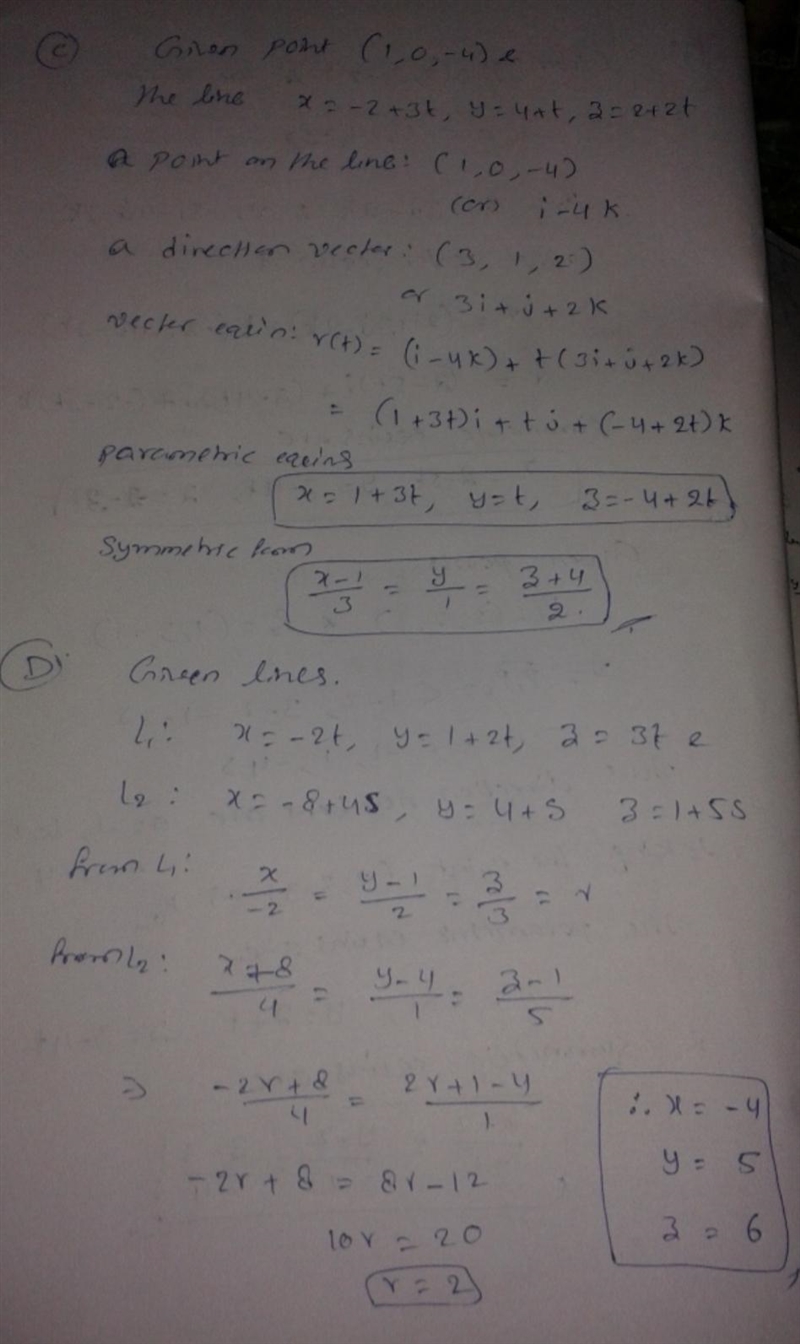 C Given point (1,0,-4) &
the line x = -2+3t, y = 4+t, z = 2+2t
a point on the line: (1,0,-4)
(or) i-4k
a direction vector: (3, 1, 2)
or 3i+j+2k
vector eqn: r(t) = (i-4k)+t(3i+j+2k)
= (1+3t)i+tj+(-4+2t)k
parametric eqns
x = 1+3t, y=t, z=-4+2t,
Symmetric form
(x-1)/3 = y/1 = (z+4)/2
D) Given lines.
L₁: x = -2t, y = 1+2t, z = 3t &
L₂: x = -8+4s, y = 4+s z = 1+5s
from L₁: x/-2 = (y-1)/2 = z/3 = r
from L₂: (x+8)/4 = (y-4)/1 = (z-1)/5
⇒ (-2r+8)/4 = (2r+1-4)/1
-2r+8 = 8r-12
10r = 20
r = 2
∴ x = -4
y = 5
z = 6